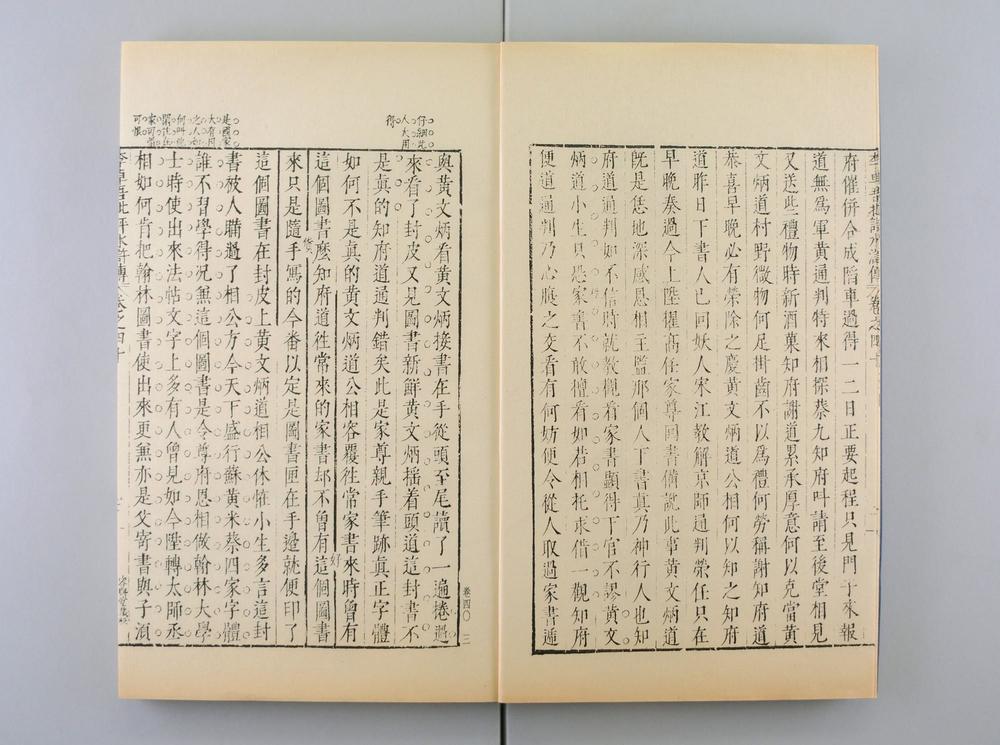 李卓吾批評水滸傳 卷之四十
府催併合成陷車過得一二日正要起程只見門子來報
道無爲軍黃通判特來相探蔡九知府叫請至後堂相見
又送些禮物時新酒菓知府謝道累承厚意何以克當黃
文炳道村野微物何足掛齒不以爲禮何勞稱謝知府道
恭喜早晚必有榮除之慶黃文炳道公相何以知之知府
道昨日下書人已回妖人宋江教解京師通判榮任只在
早晚奏過今上陞擢高任家尊回書備說此事黃文炳道
旣是恁地深感恩相主監那個人下書真乃神行人也知
府道通判如不信時就教觀看家書顯得下官不謬黃文
炳道小生只恐家書不敢擅看如若相托求借一觀知府
便道通判乃心腹之交看有何妨便令從人取過家書遞
仔細此
人大用
得
卷四〇 三
與黃文炳看黃文炳接書在手從頭至尾讀了一遍捲過
來看了封皮又見圖書新鮮黃文炳搖着頭道這封書不
是真的知府道通判錯矣此是家尊親手筆跡真正字體
如何不是真的黃文炳道公相容覆往常家書來時曾有
這個圖書麼知府道往常來的家書却不曾有這個圖書
好
來只是隨手寫的今番以定是圖書匣在手邊就便印了
這個圖書在封皮上黃文炳道相公休怪小生多言這封
書被人瞞過了相公方今天下盛行蘇黃米蔡四家字體
誰不習學得況無這個圖書是令尊府恩相做翰林大學
士時使出來法帖文字上多有人曾見如今陞轉太師丞
相如何肯把翰林圖書使出來更無亦是父寄書與子須
是國家
大有用
之人
可恨
李卓吾批評水滸傳 卷之四十